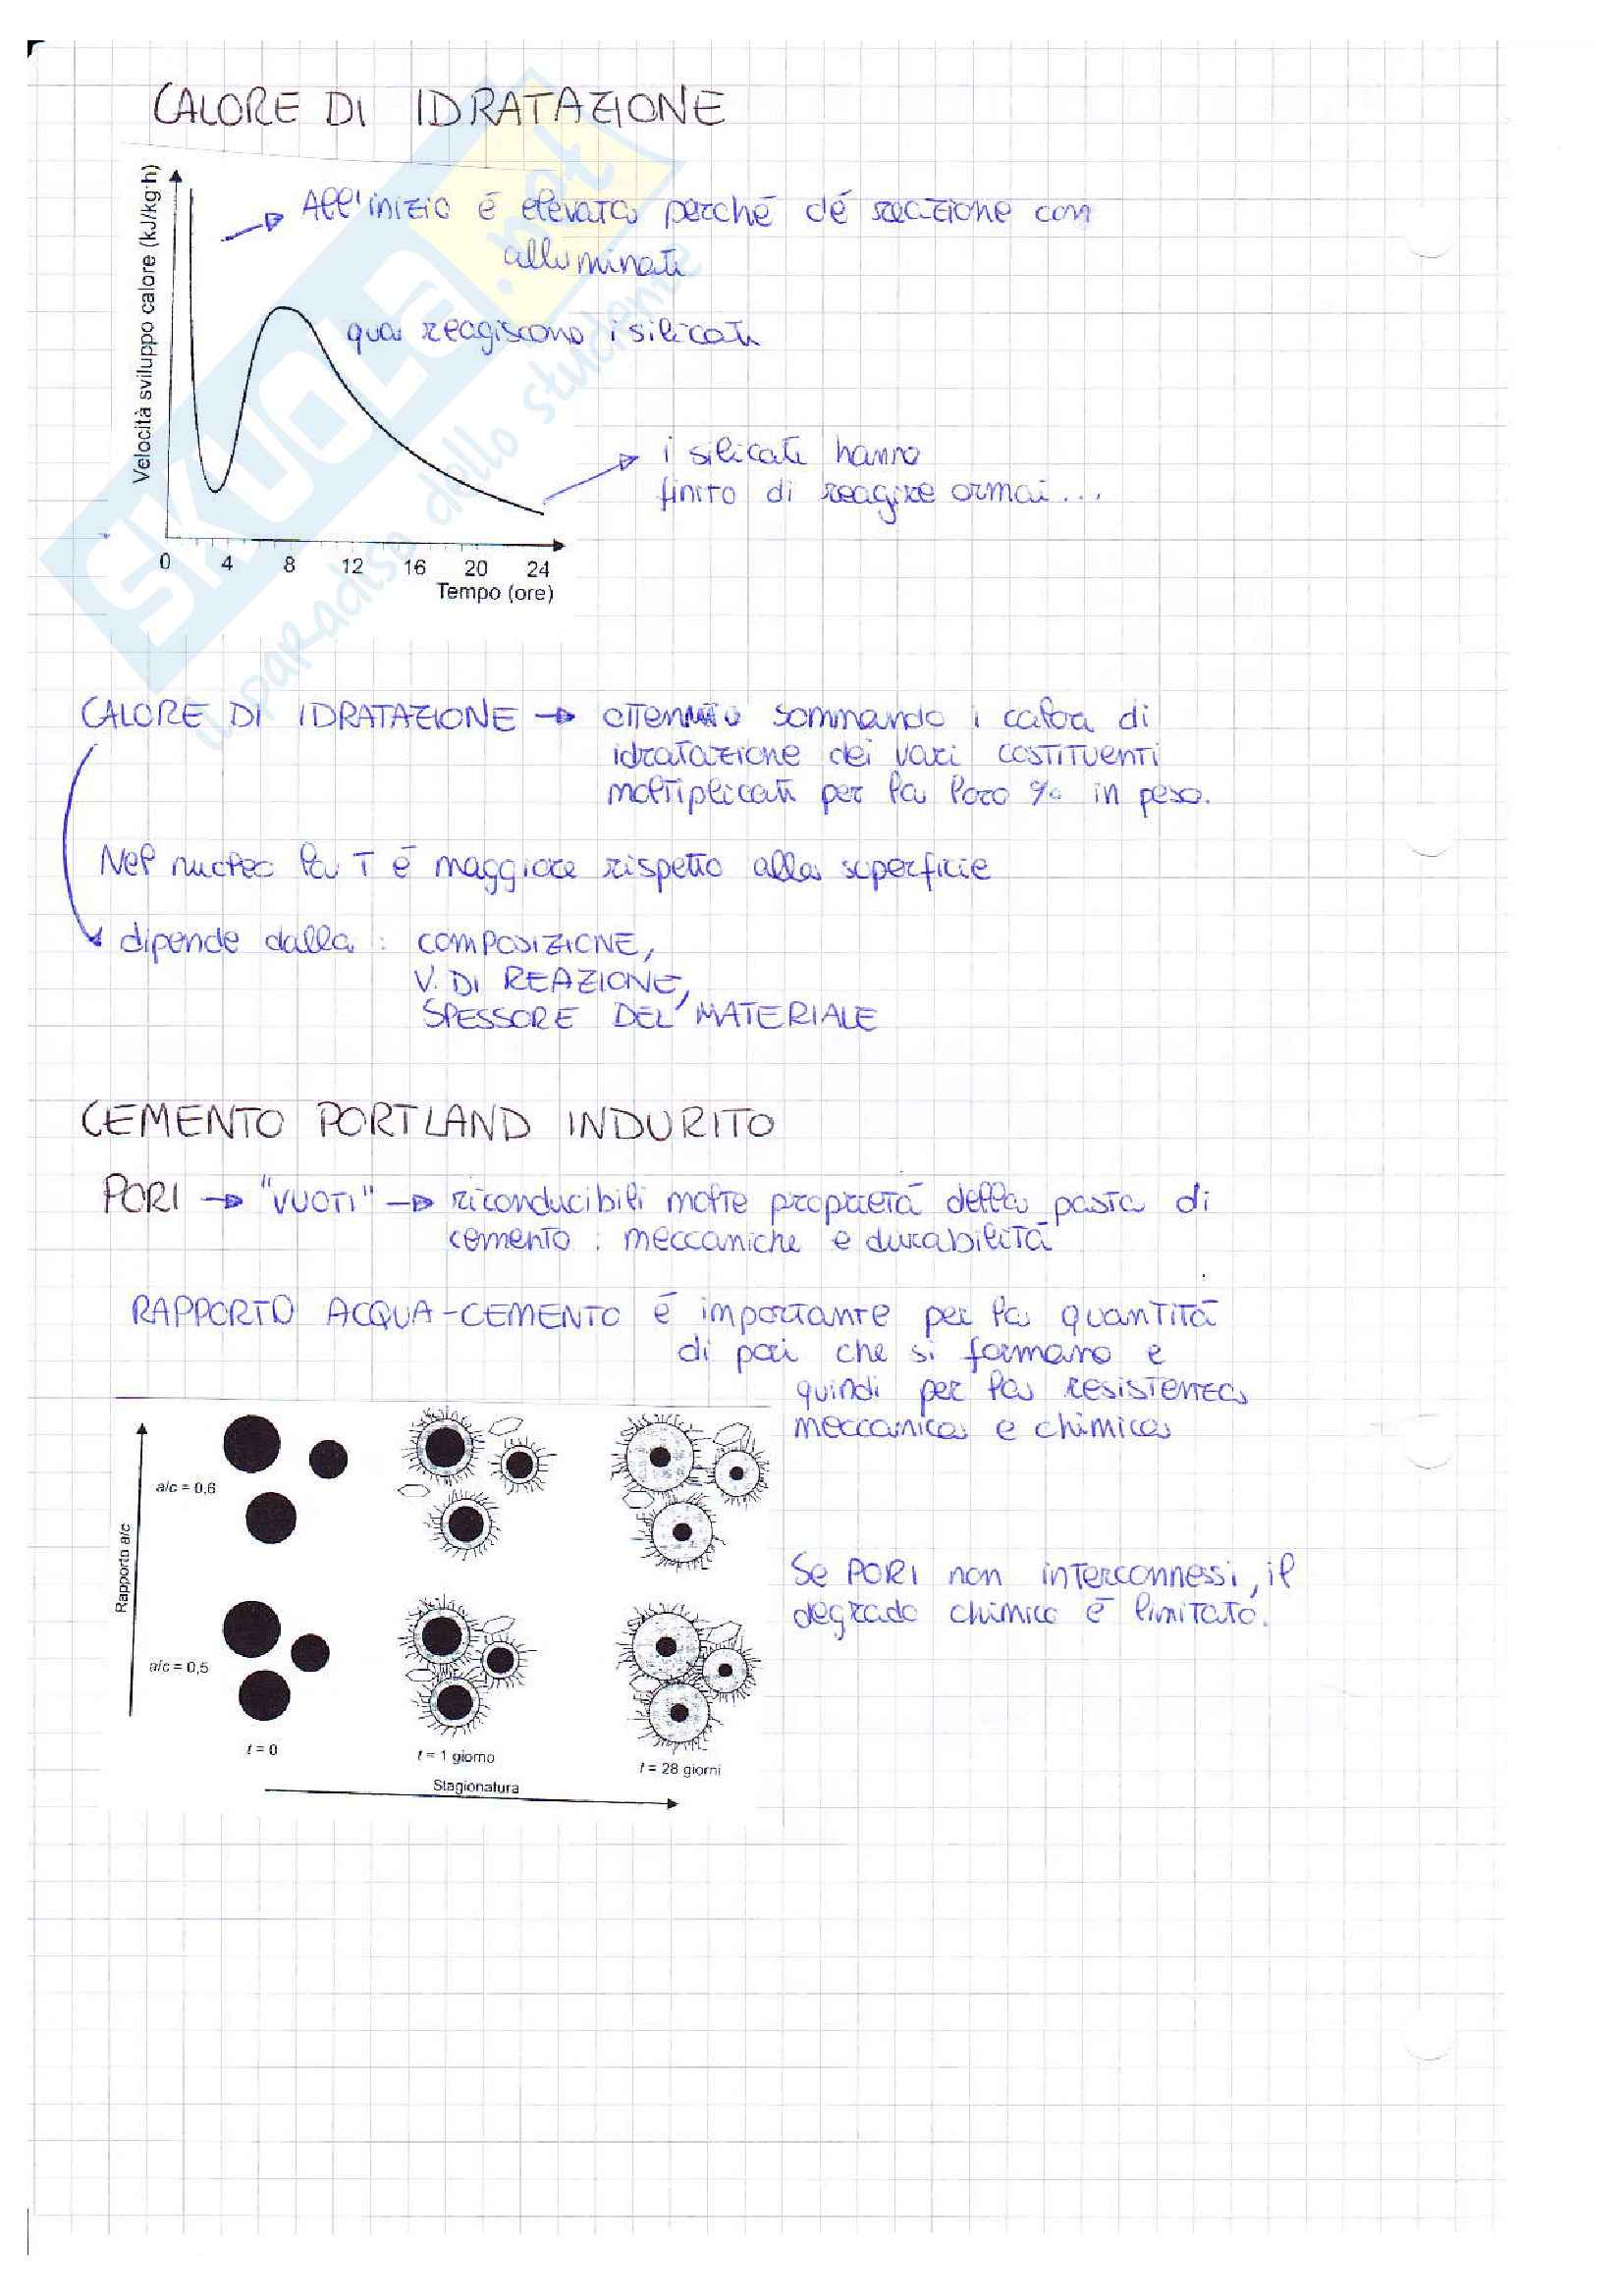 CALORE DI IDRATAZIONE
Velocità sviluppo calore (kJ/kg·h)
All'inizio é elevata perché c'é reazione con
alluminati
qua reagiscono i silicati
i silicati hanno
finito di reagire ormai...
0 4 8 12 16 20 24
Tempo (ore)
SKUOLA.net
il paradiso dello studente
CALORE DI IDRATAZIONE → ottenuto sommando i calori di
idratazione dei vari COSTITUENTI
moltiplicati per la loro % in peso.
Nel nucleo la T é maggiore rispetto alla superficie
dipende dalla : COMPOSIZIONE,
V. DI REAZIONE,
SPESSORE DEL MATERIALE
CEMENTO PORTLAND INDURITO
PORI → "VUOTI" → riconducibili molte proprietá della pasta di
cemento : meccaniche e durabilitá
RAPPORTO ACQUA-CEMENTO é importante per la quantitá
di pori che si formano e
quindi per la resistenza
meccanica e chimica
Rapporto a/c
a/c = 0,6
a/c = 0,5
Se PORI non interconnessi, il
degrado chimico é limitato.
t = 0
t = 1 giorno
t = 28 giorni
Stagionatura